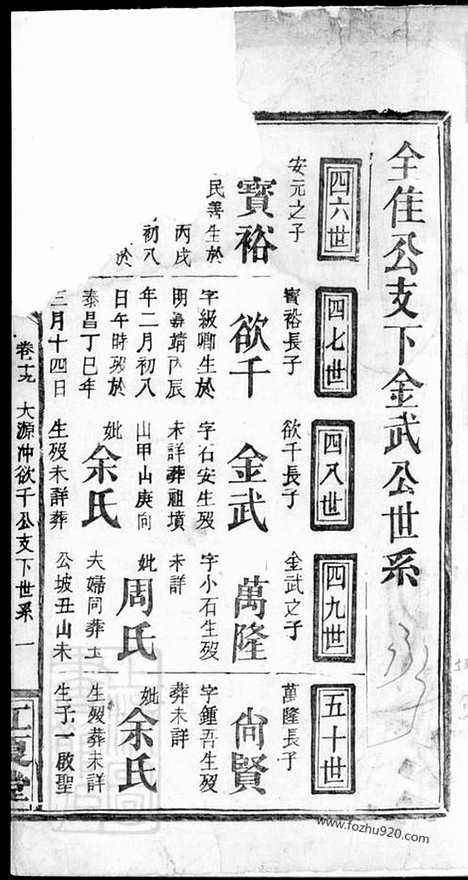 全佳公支下金武公世系
四六世
安元之子
寳裕
民善生於
丙戌
初八
於
四七世
寳裕長子
欲千
字級卿生於
明嘉靖丙辰
年二月初八
日午時殁於
泰昌丁巳年
三月十四日
四八世
欲千長子
金武
字石安生殁
未詳葬祖墳
山甲山庚向
妣
余氏
生殁未詳葬
四九世
金武之子
萬隆
字小石生殁
未詳
妣
周氏
夫婦同葬玉
公坡丑山未
五十世
萬隆長子
尙賢
字鍾吾生殁
葬未詳
妣
余氏
生殁葬未詳
生子一啟聖
卷十九 大源冲欲千公支下世系 一
江夏堂
www.fozhu920.com